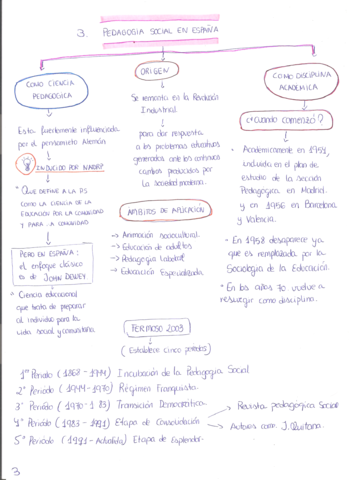 3. PEDAGOGÍA SOCIAL EN ESPAÑA
COMO CIENCIA
PEDAGÓGICA
Esta fuertemente influenciada
por el pensamiento Alemán.
INDUCIDO POR NATORP
* QUE DEFINE A LA PS
COMO LA CIENCIA DE LA
EDUCACIÓN POR LA COMUNIDAD
Y PARA LA COMUNIDAD
PERO EN ESPAÑA:
el enfoque clásico
es de JOHN DEWEY
* Ciencia educacional
que trata de preparar
al individuo para la
vida social y comunitaria.
ORIGEN
Se remonta en la Revolución
Industrial.
para dar respuesta
a los problemas educativos
generados ante los continuos
cambios producidos por
la Sociedad moderna.
ÁMBITOS DE APLICACIÓN
→ Animación sociocultural.
→ Educación de adultos
→ Pedagogía Laboral
→ Educación Especializada.
COMO DISCIPLINA
ACADÉMICA
¿Cuándo comenzó?
* Académicamente en 1951,
incluida en el plan de
estudio de la Sección
Pedagógica en Madrid.
y en 1956 en Barcelona
y Valencia.
* En 1958 desaparece ya
que es remplazada por la
Sociología de la Educación.
* En los años 70 vuelve a
resurgir como disciplina.
FERMOSO 2003
(Establece cinco periodos)
1er Periodo ( - 1944) Incubación de la Pedagogía Social
2º Periodo (1944-1970) Régimen Franquista.
3º Periodo (1970-1 83) Transición Democrática.
4º Periodo (1983 - 1991) Etapa de Consolidación
→ Revista pedagógica Social
→ Autores com J. Quintana.
5º Periodo (1991 - Actualidad) Etapa de Esplendor.
3